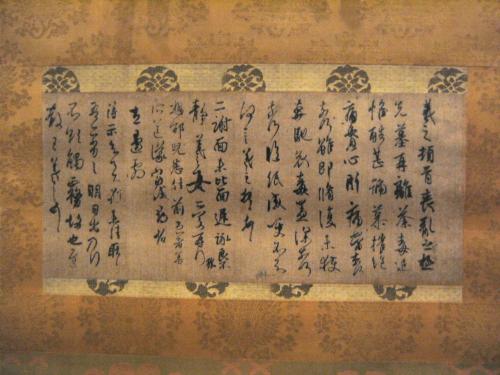 羲之頓首喪亂之極
先墓再離荼毒追
惟酷甚號慕摧絕
痛貫心肝痛當奈何
奈何雖即脩復未獲
奔馳哀毒益深奈何
奈何臨紙感哽不知
何言羲之頓首頓首
二謝面未比面遲詠良
靜羲之女愛再拜
想邵兒悉佳前患者善
左邊劇
得示知足下猶未佳耿
吾亦劣明日出乃行
不欲觸霧故也遲
散王羲之頓首